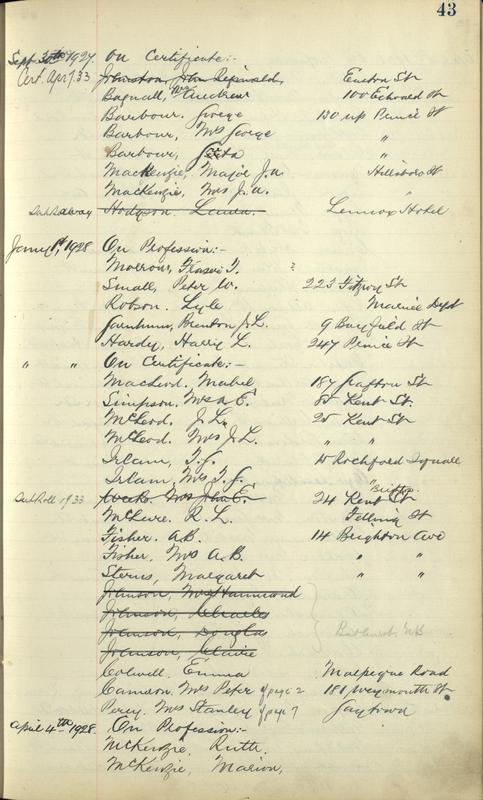 43
Sept 30th 1927. On Certificate:-
Cert. Apr 7.33 Johnston, John Reginald, Euston St
Bagnall, Mrs Andrew 100 Edward St
Barbour. George 130 up Prince St
Barbour, Mrs George "
Barbour, "
MacKenzie, Major J.A. Hillsboro St
MacKenzie, Mrs J.A. "
Hodgson. Laura. Lennox Hotel
Jany 1st, 1928 On Profession:-
Morrow, Fraser T. ?
Small, Peter W. 223 Fitzroy St
Robson. Lyle Marine Dept
Brenton J.L. 9 Bayfield St
Hardy, Harry L. 247 Prince St
" " On Certificate:-
MacLeod. Mabel 187 Grafton St
Simpson. Mrs A.E. 85 Kent St.
McLeod. J.L. 25 Kent St
McLeod. Mrs J.L. " "
Irlam, T.G. 15 Rochford Square
Irlam, Mrs T.G. "
Out Roll 9/33 Mrs John E. 24 Kent St
McLure. R.L. St
Fisher. A.B. 14 Brighton Ave
Fisher, Mrs A.B. " "
Sterns, Margaret " "
Johnson, Mrs Hammond
Johnson, Charles
Johnson, Douglas
Johnson, Claire
N.B.
Colwill. Emma Malpeque Road
Cameron, Mrs Peter of page 2 180 Weymouth St
Percy. Mrs Stanley of page 7
April 4th 1928. On Profession:-
McKenzie, Ruth.
McKenzie, Marion,